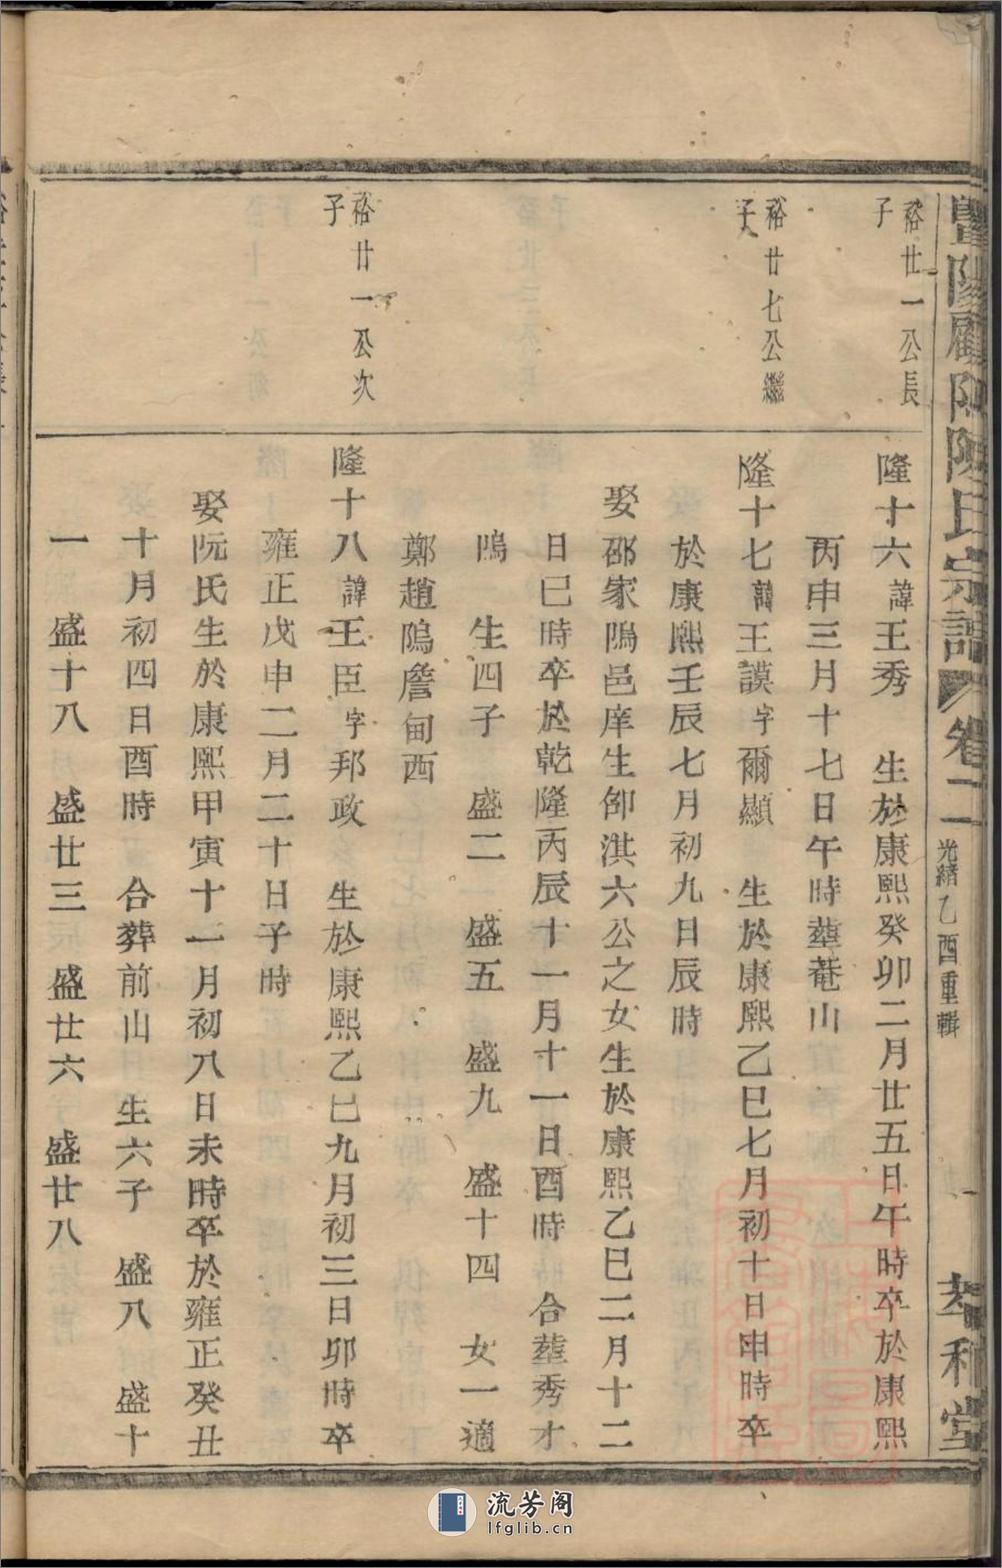 暨陽開化陳氏宗譜 卷二 光緒乙酉重輯 萃和堂
裕廿一公長
子
隆十六諱王秀 生於康熙癸卯二月廿五日午時卒於康熙
丙申三月十七日午時塟菴山
裕廿七公繼
子
隆十七諱王謨字爾顯 生於康熙乙巳七月初十日申時卒
於康熙壬辰七月初九日辰時
娶邵家隝邑庠生御淇六公之女生於康熙乙巳二月十二
日巳時卒於乾隆丙辰十一月十一日酉時 合塟秀才
隝 生四子 盛二 盛五 盛九 盛十四 女一適
鄭趙隝詹甸西
裕廿一公次
子
隆十八諱王臣字邦政 生於康熙乙巳九月初三日卯時卒
雍正戊申二月二十日子時
娶阮氏生於康熙甲寅十一月初八日未時卒於雍正癸丑
十月初四日酉時 合葬前山 生六子 盛八 盛十
一 盛十八 盛廿三 盛廿六 盛廿八
流芳阁
lfglib.cn